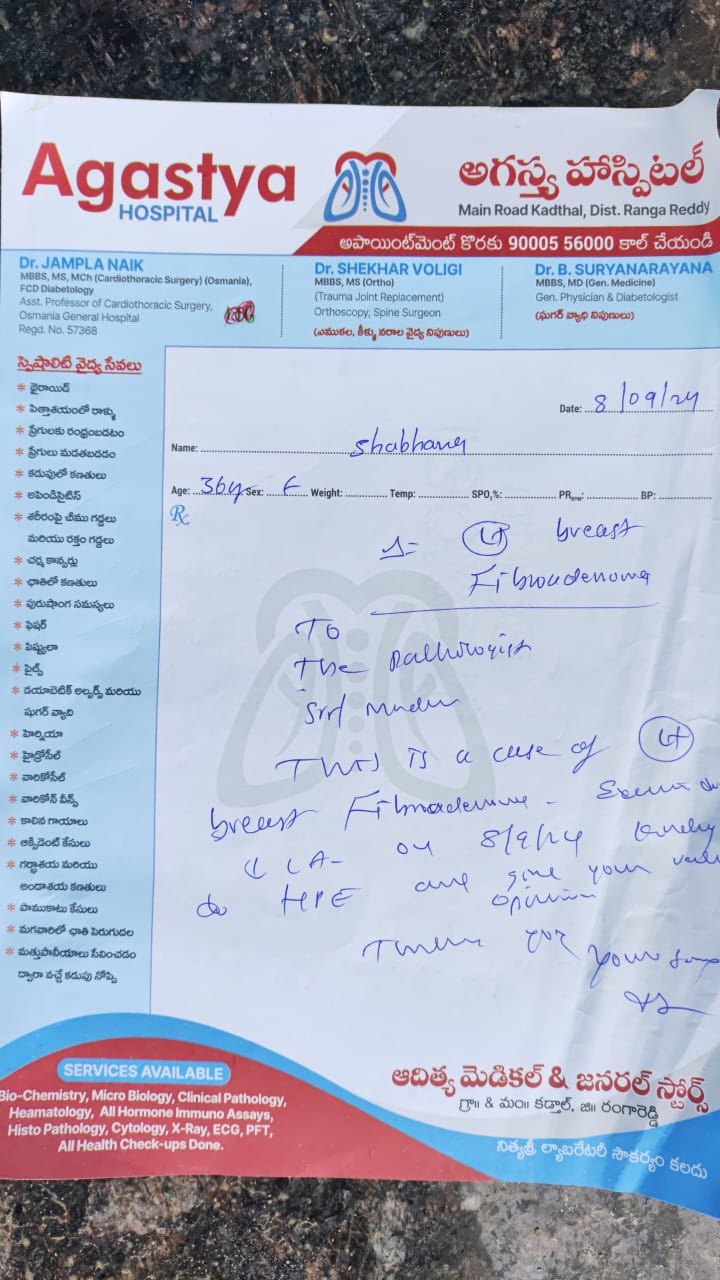 Agastya
HOSPITAL
అగస్త్య హాస్పిటల్
Main Road Kadthal, Dist. Ranga Reddy
అపాయింట్‌మెంట్ కొరకు 90005 56000 కాల్ చేయండి
Dr. JAMPLA NAIK
MBBS, MS, MCh (Cardiothoracic Surgery) (Osmania),
FCD Diabetology
Asst. Professor of Cardiothoracic Surgery,
Osmania General Hospital
Regd. No. 57368
Dr. SHEKHAR VOLIGI
MBBS, MS (Ortho)
(Trauma Joint Replacement)
Orthoscopy, Spine Surgeon
(ఎముకల, కీళ్ళు నరాల వైద్య నిపుణులు)
Dr. B. SURYANARAYANA
MBBS, MD (Gen. Medicine)
Gen. Physician & Diabetologist
(షుగర్ వ్యాధి నిపుణులు)
స్పెషాలిటి వైద్య సేవలు
* థైరాయిడ్
* పిత్తాశయంలో రాళ్ళు
* ప్రేగులకు రంధ్రంబడటం
* ప్రేగులు మడతబడడం
* కడుపులో కణతులు
* అపెండిసైటిస్
* శరీరంపై చీము గడ్డలు
మరియు రక్తం గడ్డలు
* చర్మ కాన్సర్లు
* ఛాతిలో కణతులు
* పురుషాంగ సమస్యలు
* ఫిషర్
* ఫిష్టులా
* పైల్స్
* డయాబెటిక్ అల్సర్స్ మరియు
షుగర్ వ్యాధి
* హెర్నియా
* హైడ్రోసీల్
* వారికోసీల్
* వారికోస్ వీన్స్
* కాలిన గాయాలు
* ఆక్సిడెంట్ కేసులు
* గర్భాశయ మరియు
అండాశయ కణతులు
* పాముకాటు కేసులు
* మగవారిలో ఛాతి పెరుగుదల
* మత్తుపానీయాలు సేవించడం
ద్వారా వచ్చే కడుపు నొప్పి
Date: 8/09/24
Name: Shabhana
Age: 36y Sex: F Weight: Temp: SPO2%: PR: BP:
Rx
Lt breast
Fibroadenoma
To
The pathologist
Sir/ Madam
This is a case of Lt
breast Fibroadenoma - 
LA- on 8/9/24 kindly
do HPE and give your
opinion
Thank you
your
SERVICES AVAILABLE
Bio-Chemistry, Micro Biology, Clinical Pathology,
Heamatology, All Hormone Immuno Assays,
Histo Pathology, Cytology, X-Ray, ECG, PFT,
All Health Check-ups Done.
ఆదిత్య మెడికల్ & జనరల్ స్టోర్స్
గ్రా॥ & మం॥ కడ్తాల్, జి॥ రంగారెడ్డి
నిత్యశ్రీ ల్యాబరేటరీ సౌకర్యం కలదు